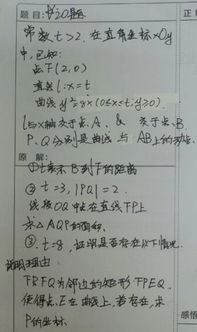 题目:
常数t>2,在直角坐标xOy
中,已知:
点F(2,0)
直线l:x=t
曲线y²=8x(0≤x≤t,y≥0).
l与x轴交于点A,& 交于点B,
P、Q分别是曲线与AB上的动点.
原 解:
①t表示B到F的距离
② t=3,|PQ|=2.
线段OQ中点在直线FP上
求△AQP的面积.
③.t=8,证明是否存在以下情况
说明理由
FP、FQ为邻边的矩形FPEQ,
使得点E在曲线上,若存在,求
P的坐标.
正
感悟